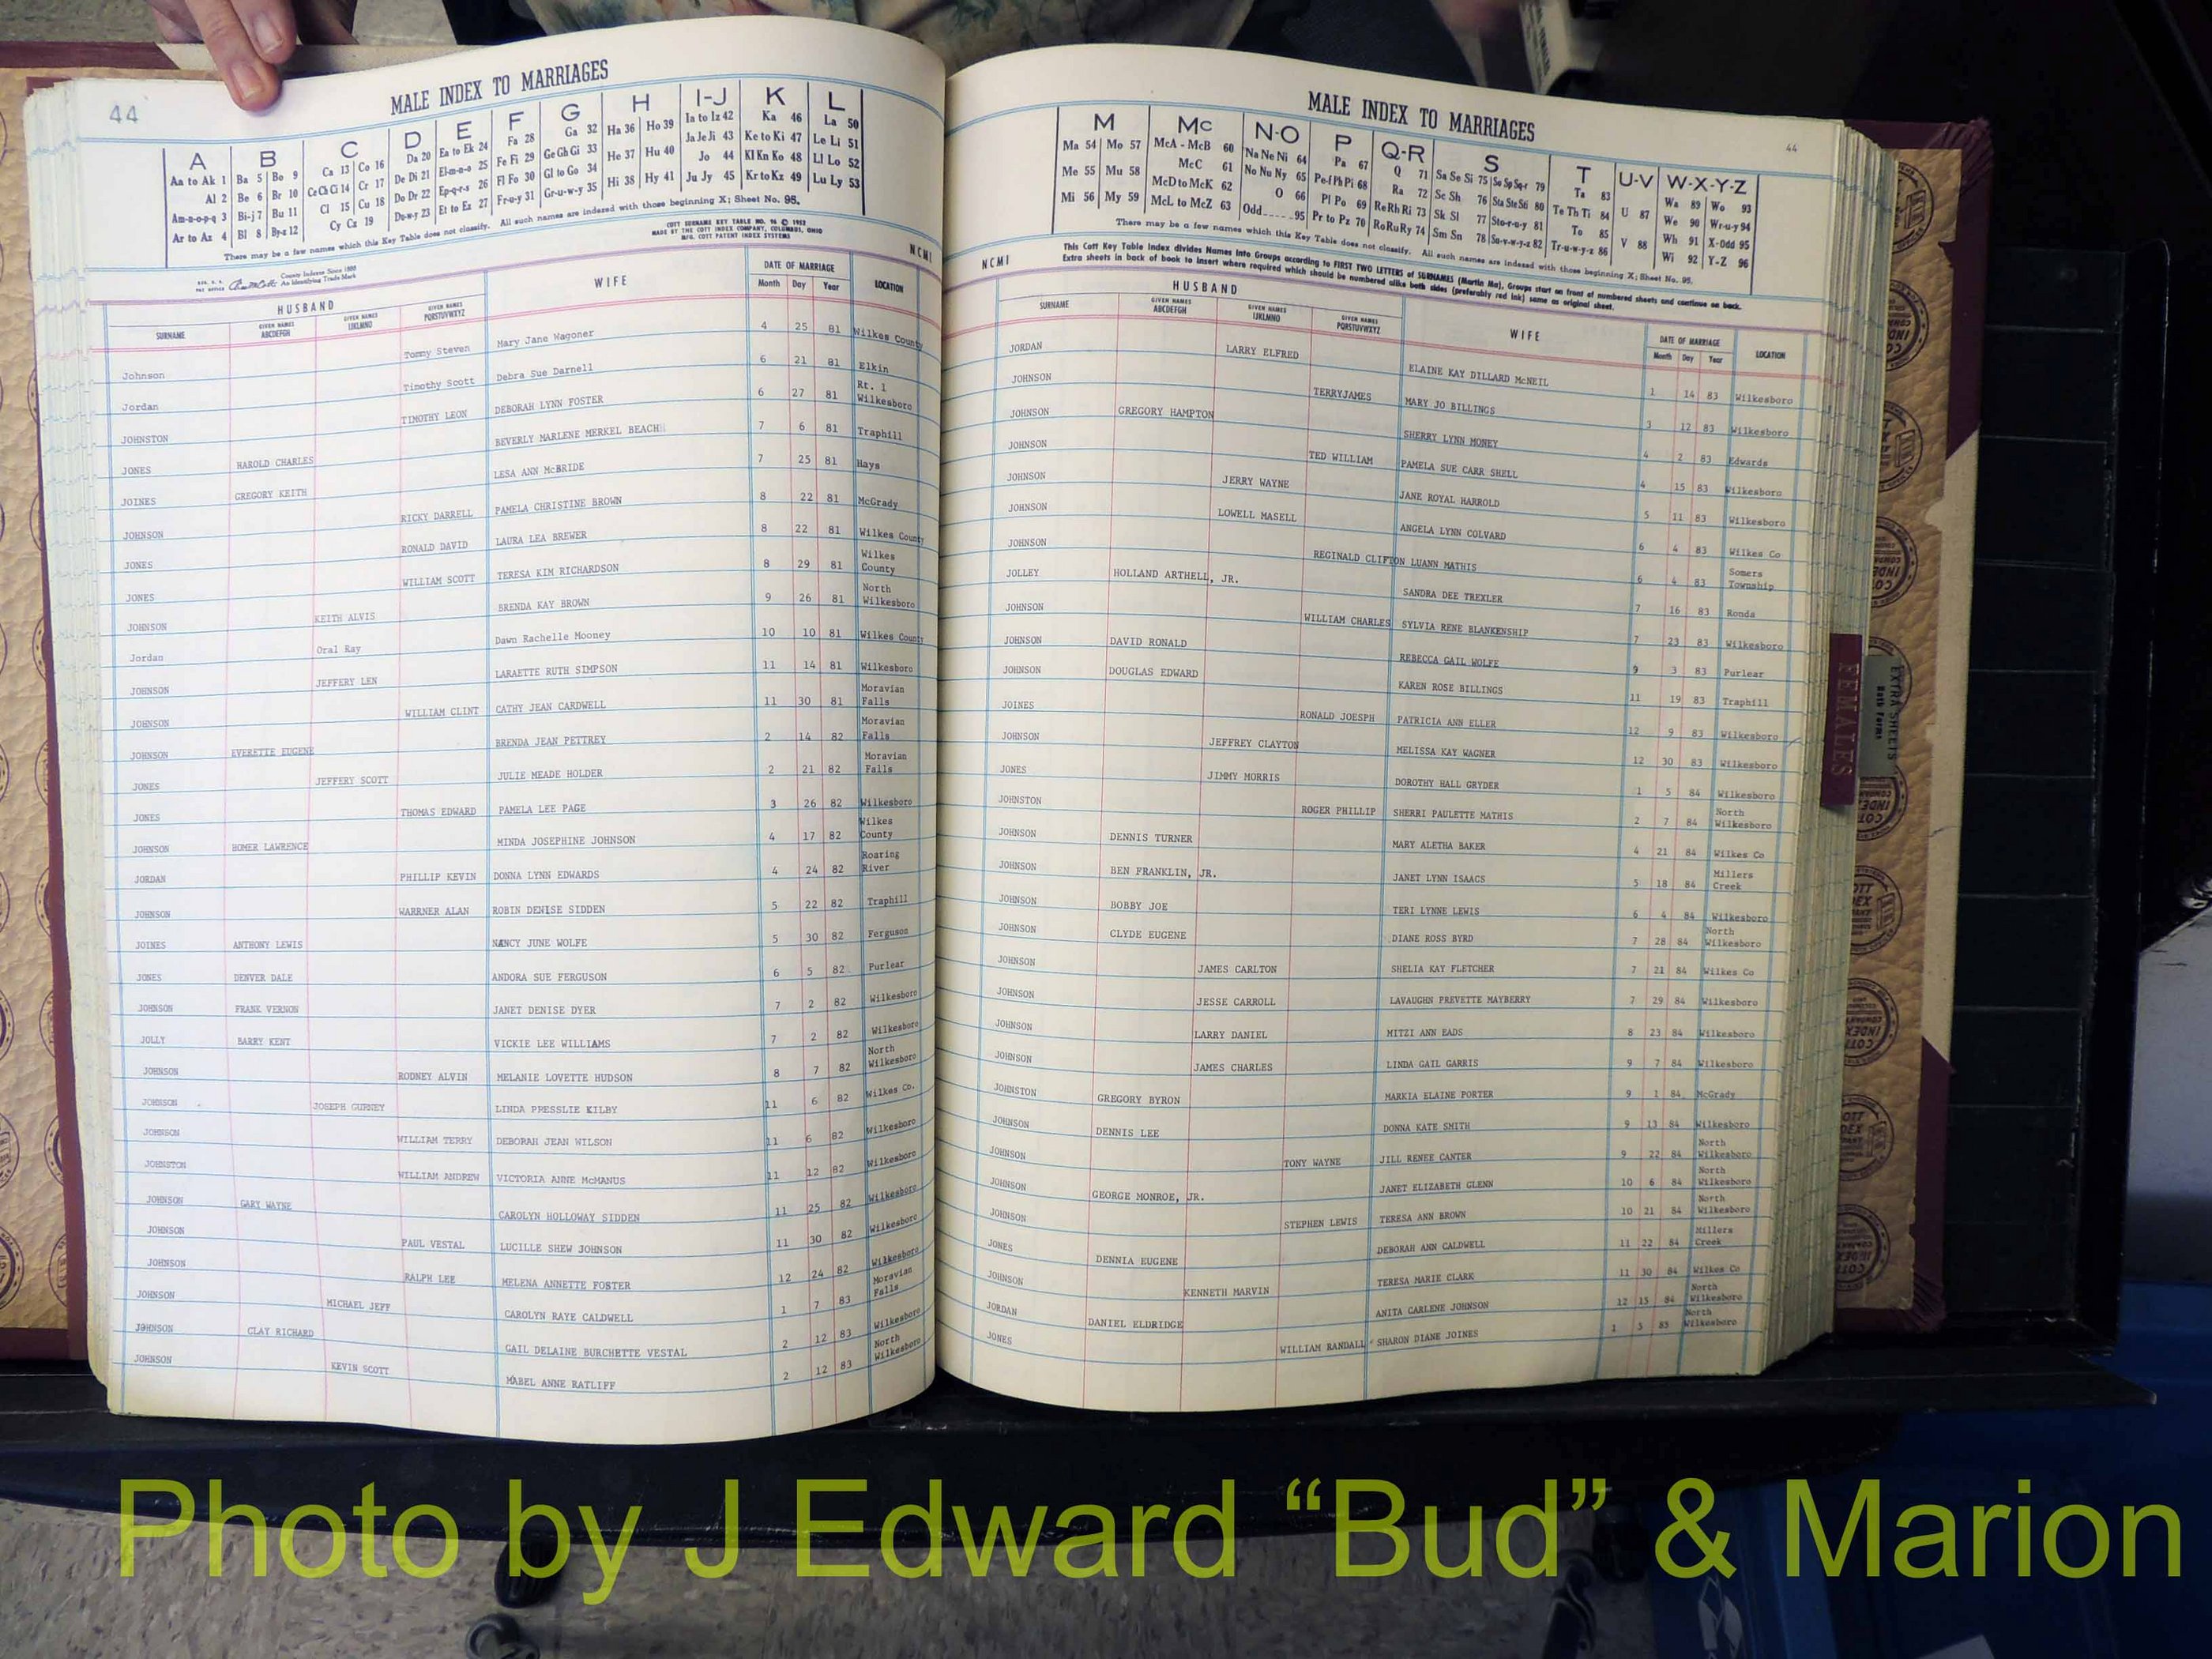 44
MALE INDEX TO MARRIAGES
A B C D E F G H I-J K L
Aa to Ak 1 Ba 5 Bo 9 Ca 13 Co 16 Da 20 Ea to Ek 24 Fa 28 Ga 32 Ha 36 Ho 39 Ia to Iz 42 Ka 46 La 50
Al 2 Be 6 Br 10 Ce Ch Ci 14 Cr 17 De Di 21 El-m-n-o 25 Fe Fi 29 Ge Gh Gi 33 He 37 Hu 40 Ja Je Ji 43 Ke to Ki 47 Le Li 51
Am-n-o-p-q 3 Bi-j 7 Bu 11 Cl 15 Cu 18 Do Dr 22 Ep-q-r-s 26 Fl Fo 30 Gl to Go 34 Hi 38 Hy 41 Jo 44 Kl Kn Ko 48 Ll Lo 52
Ar to Az 4 Bl 8 By-z 12 Cy Cz 19 Du-w-y 23 Et to Ez 27 Fr-u-y 31 Gr-u-w-y 35 Ju Jy 45 Kr to Kz 49 Lu Ly 53
There may be a few names which this Key Table does not classify. All such names are indexed with those beginning X; Sheet No. 95.
COTT SURNAME KEY TABLE NO. 96 © 1952
MADE BY THE COTT INDEX COMPANY, COLUMBUS, OHIO
MFG. COTT PATENT INDEX SYSTEMS
County Indexes Since 1888
An Identifying Trade Mark
NCMI
HUSBAND WIFE DATE OF MARRIAGE LOCATION
SURNAME GIVEN NAMES ABCDEFGH GIVEN NAMES IJKLMNO GIVEN NAMES PQRSTUVWXYZ Month Day Year
Johnson Tommy Steven Mary Jane Wagoner 4 25 81 Wilkes County
Jordan Timothy Scott Debra Sue Darnell 6 21 81 Elkin
JOHNSTON TIMOTHY LEON DEBORAH LYNN FOSTER 6 27 81 Rt. 1 Wilkesboro
JONES HAROLD CHARLES BEVERLY MARLENE MERKEL BEACH 7 6 81 Traphill
JOINES GREGORY KEITH LESA ANN McBRIDE 7 25 81 Hays
JOHNSON RICKY DARRELL PAMELA CHRISTINE BROWN 8 22 81 McGrady
JONES RONALD DAVID LAURA LEA BREWER 8 22 81 Wilkes County
JONES WILLIAM SCOTT TERESA KIM RICHARDSON 8 29 81 Wilkes County
JOHNSON KEITH ALVIS BRENDA KAY BROWN 9 26 81 North Wilkesboro
Jordan Oral Ray Dawn Rachelle Mooney 10 10 81 Wilkes County
JOHNSON JEFFERY LEN LARAETTE RUTH SIMPSON 11 14 81 Wilkesboro
JOHNSON WILLIAM CLINT CATHY JEAN CARDWELL 11 30 81 Moravian Falls
JOHNSON EVERETTE EUGENE BRENDA JEAN PETTREY 2 14 82 Moravian Falls
JONES JEFFERY SCOTT JULIE MEADE HOLDER 2 21 82 Moravian Falls
JONES THOMAS EDWARD PAMELA LEE PAGE 3 26 82 Wilkesboro
JOHNSON HOMER LAWRENCE MINDA JOSEPHINE JOHNSON 4 17 82 Wilkes County
JORDAN PHILLIP KEVIN DONNA LYNN EDWARDS 4 24 82 Roaring River
JOHNSON WARRNER ALAN ROBIN DENISE SIDDEN 5 22 82 Traphill
JOINES ANTHONY LEWIS NANCY JUNE WOLFE 5 30 82 Ferguson
JONES DENVER DALE ANDORA SUE FERGUSON 6 5 82 Purlear
JOHNSON FRANK VERNON JANET DENISE DYER 7 2 82 Wilkesboro
JOLLY BARRY KENT VICKIE LEE WILLIAMS 7 2 82 Wilkesboro
JOHNSON RODNEY ALVIN MELANIE LOVETTE HUDSON 8 7 82 North Wilkesboro
JOHNSON JOSEPH GURNEY LINDA PRESSLIE KILBY 11 6 82 Wilkes Co.
JOHNSON WILLIAM TERRY DEBORAH JEAN WILSON 11 6 82 Wilkesboro
JOHNSTON WILLIAM ANDREW VICTORIA ANNE McMANUS 11 12 82 Wilkesboro
JOHNSON GARY WAYNE CAROLYN HOLLOWAY SIDDEN 11 25 82 Wilkesboro
JOHNSON PAUL VESTAL LUCILLE SHEW JOHNSON 11 30 82 Wilkesboro
JOHNSON RALPH LEE MELENA ANNETTE FOSTER 12 24 82 Wilkesboro
JOHNSON MICHAEL JEFF CAROLYN RAYE CALDWELL 1 7 83 Moravian Falls
JOHNSON CLAY RICHARD GAIL DELAINE BURCHETTE VESTAL 2 12 83 Wilkesboro
JOHNSON KEVIN SCOTT MABEL ANNE RATLIFF 2 12 83 North Wilkesboro
MALE INDEX TO MARRIAGES
44
M Mc N-O P Q-R S T U-V W-X-Y-Z
Ma 54 Mo 57 McA - McB 60 Na Ne Ni 64 Pa 67 Q 71 Sa Se Si 75 So Sp Sq-r 79 Ta 83 Wa 89 Wo 93
Me 55 Mu 58 McC 61 No Nu Ny 65 Pe-f Ph Pi 68 Ra 72 Sc Sh 76 Sta Ste Sti 80 Te Th Ti 84 U 87 We 90 Wr-u-y 94
Mi 56 My 59 McD to McK 62 O 66 Pl Po 69 Re Rh Ri 73 Sk Sl 77 Sto-r-u-y 81 To 85 V 88 Wh 91 X-Odd 95
McL to McZ 63 Odd 95 Pr to Pz 70 Ro Ru Ry 74 Sm Sn 78 Su-v-w-y-z 82 Tr-u-w-y-z 86 Wi 92 Y-Z 96
There may be a few names which this Key Table does not classify. All such names are indexed with those beginning X; Sheet No. 95.
This Cott Key Table Index divides Names into Groups according to FIRST TWO LETTERS of SURNAMES (Martin Ma), Groups start on front of numbered sheets and continue on back.
Extra sheets in back of book to insert where required which should be numbered alike both sides (preferably red ink) same as original sheet.
NCMI
HUSBAND WIFE DATE OF MARRIAGE LOCATION
SURNAME GIVEN NAMES ABCDEFGH GIVEN NAMES IJKLMNO GIVEN NAMES PQRSTUVWXYZ Month Day Year
JORDAN LARRY ELFRED ELAINE KAY DILLARD McNEIL 1 14 83 Wilkesboro
JOHNSON TERRYJAMES MARY JO BILLINGS 3 12 83 Wilkesboro
JOHNSON GREGORY HAMPTON SHERRY LYNN MONEY 4 2 83 Edwards
JOHNSON TED WILLIAM PAMELA SUE CARR SHELL 4 15 83 Wilkesboro
JOHNSON JERRY WAYNE JANE ROYAL HARROLD 5 11 83 Wilkesboro
JOHNSON LOWELL MASELL ANGELA LYNN COLVARD 6 4 83 Wilkes Co
JOHNSON REGINALD CLIFTON LUANN MATHIS 6 4 83 Somers Township
JOLLEY HOLLAND ARTHELL, JR. SANDRA DEE TREXLER 7 16 83 Ronda
JOHNSON WILLIAM CHARLES SYLVIA RENE BLANKENSHIP 7 23 83 Wilkesboro
JOHNSON DAVID RONALD REBECCA GAIL WOLFE 9 3 83 Purlear
JOHNSON DOUGLAS EDWARD KAREN ROSE BILLINGS 11 19 83 Traphill
JOINES RONALD JOESPH PATRICIA ANN ELLER 12 9 83 Wilkesboro
JOHNSON JEFFREY CLAYTON MELISSA KAY WAGNER 12 30 83 Wilkesboro
JONES JIMMY MORRIS DOROTHY HALL GRYDER 1 5 84 Wilkesboro
JOHNSTON ROGER PHILLIP SHERRI PAULETTE MATHIS 2 7 84 North Wilkesboro
JOHNSON DENNIS TURNER MARY ALETHA BAKER 4 21 84 Wilkes Co
JOHNSON BEN FRANKLIN, JR. JANET LYNN ISAACS 5 18 84 Millers Creek
JOHNSON BOBBY JOE TERI LYNNE LEWIS 6 4 84 Wilkesboro
JOHNSON CLYDE EUGENE DIANE ROSS BYRD 7 28 84 North Wilkesboro
JOHNSON JAMES CARLTON SHELIA KAY FLETCHER 7 21 84 Wilkes Co
JOHNSON JESSE CARROLL LAVAUGHN PREVETTE MAYBERRY 7 29 84 Wilkesboro
JOHNSON LARRY DANIEL MITZI ANN EADS 8 23 84 Wilkesboro
JOHNSON JAMES CHARLES LINDA GAIL GARRIS 9 7 84 Wilkesboro
JOHNSTON GREGORY BYRON MARKIA ELAINE PORTER 9 1 84 McGrady
JOHNSON DENNIS LEE DONNA KATE SMITH 9 13 84 Wilkesboro
JOHNSON TONY WAYNE JILL RENEE CANTER 9 22 84 North Wilkesboro
JOHNSON GEORGE MONROE, JR. JANET ELIZABETH GLENN 10 6 84 North Wilkesboro
JOHNSON STEPHEN LEWIS TERESA ANN BROWN 10 21 84 North Wilkesboro
JONES DENNIA EUGENE DEBORAH ANN CALDWELL 11 22 84 Millers Creek
JOHNSON KENNETH MARVIN TERESA MARIE CLARK 11 30 84 Wilkes Co
JORDAN DANIEL ELDRIDGE ANITA CARLENE JOHNSON 12 15 84 North Wilkesboro
JONES WILLIAM RANDALL SHARON DIANE JOINES 1 3 85 North Wilkesboro
FEMALES
EXTRA SHEETS
Photo by J Edward “Bud” & Marion